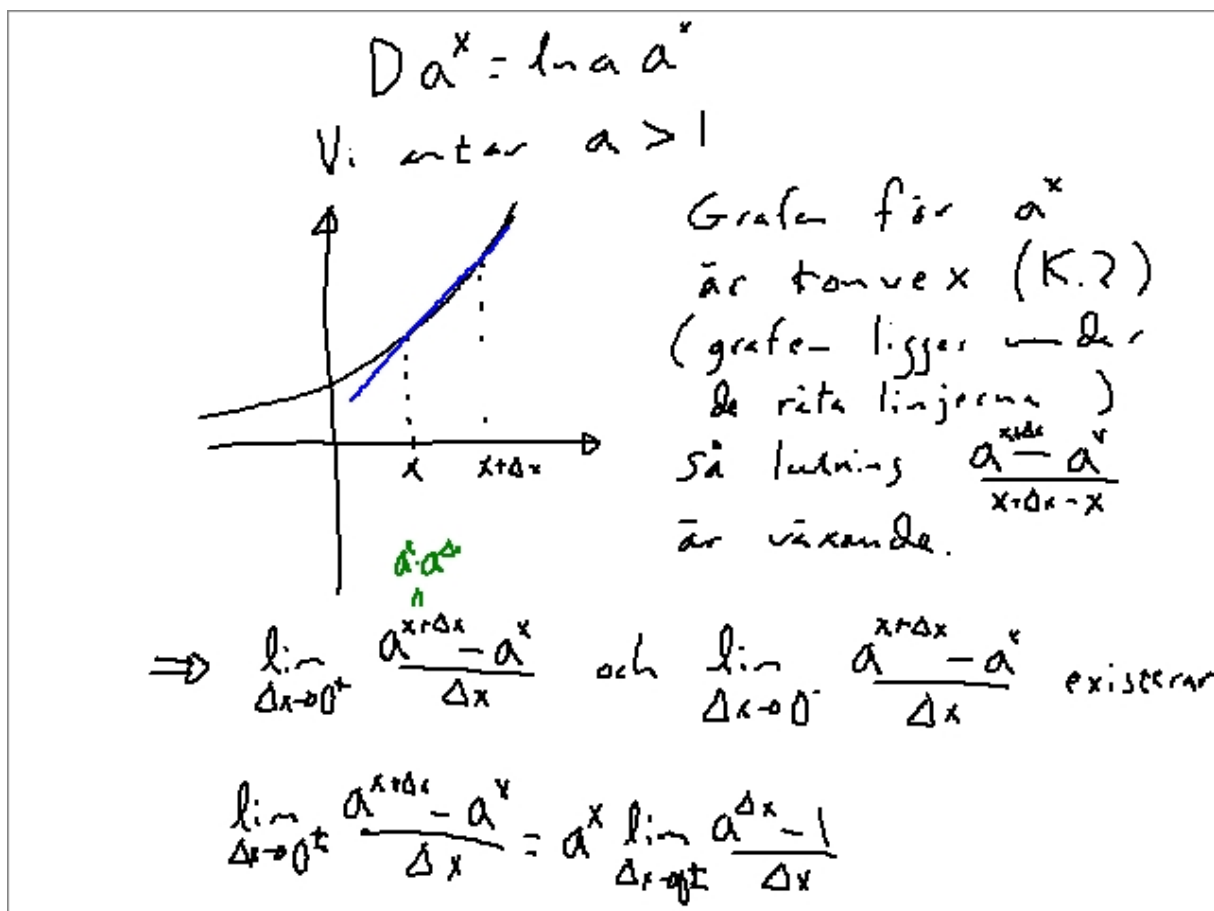 D a^x = ln a a^x
Vi antar a > 1
Grafen för a^x
är konvex (K.2)
(grafen ligger under
de räta linjerna)
så lutning (a^{x+Δx} - a^x)/(x+Δx-x)
är växande.
x x+Δx
a^x·a^{Δx}
⇒ lim_{Δx→0^+} (a^{x+Δx} - a^x)/Δx och lim_{Δx→0^-} (a^{x+Δx} - a^x)/Δx existerar
lim_{Δx→0^±} (a^{x+Δx} - a^x)/Δx = a^x lim_{Δx→0^±} (a^{Δx} - 1)/Δx